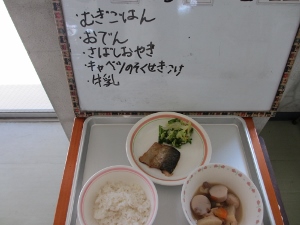 ・むぎごはん
・おでん
・さばしおやき
・キャベツのそくせきづけ
・牛乳